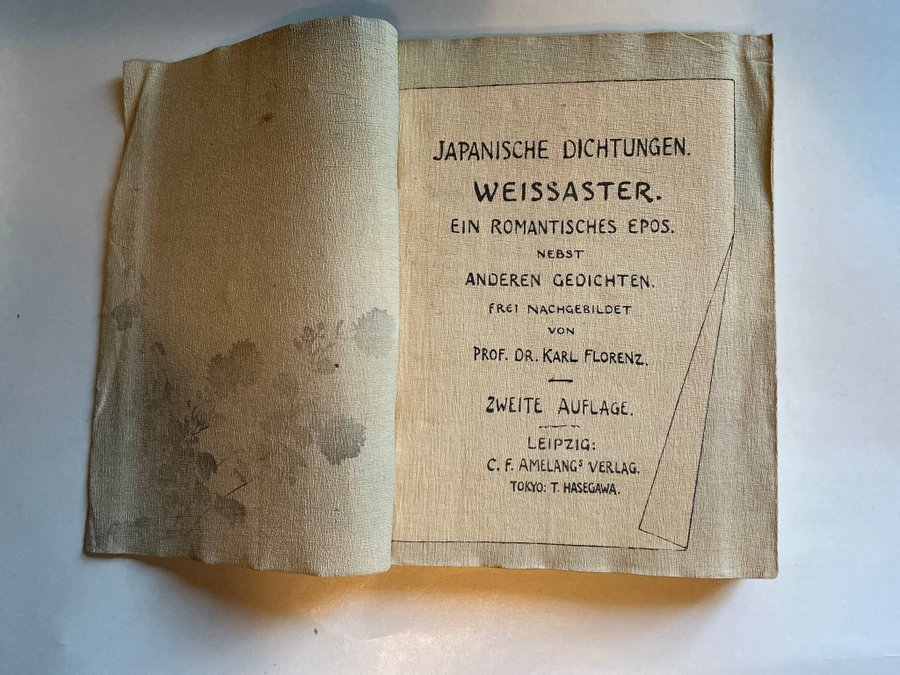 JAPANISCHE DICHTUNGEN.
WEISSASTER.
EIN ROMANTISCHES EPOS.
NEBST
ANDEREN GEDICHTEN.
FREI NACHGEBILDET
VON
PROF. DR. KARL FLORENZ.
ZWEITE AUFLAGE.
LEIPZIG:
C. F. AMELANGS VERLAG.
TOKYO: T. HASEGAWA.